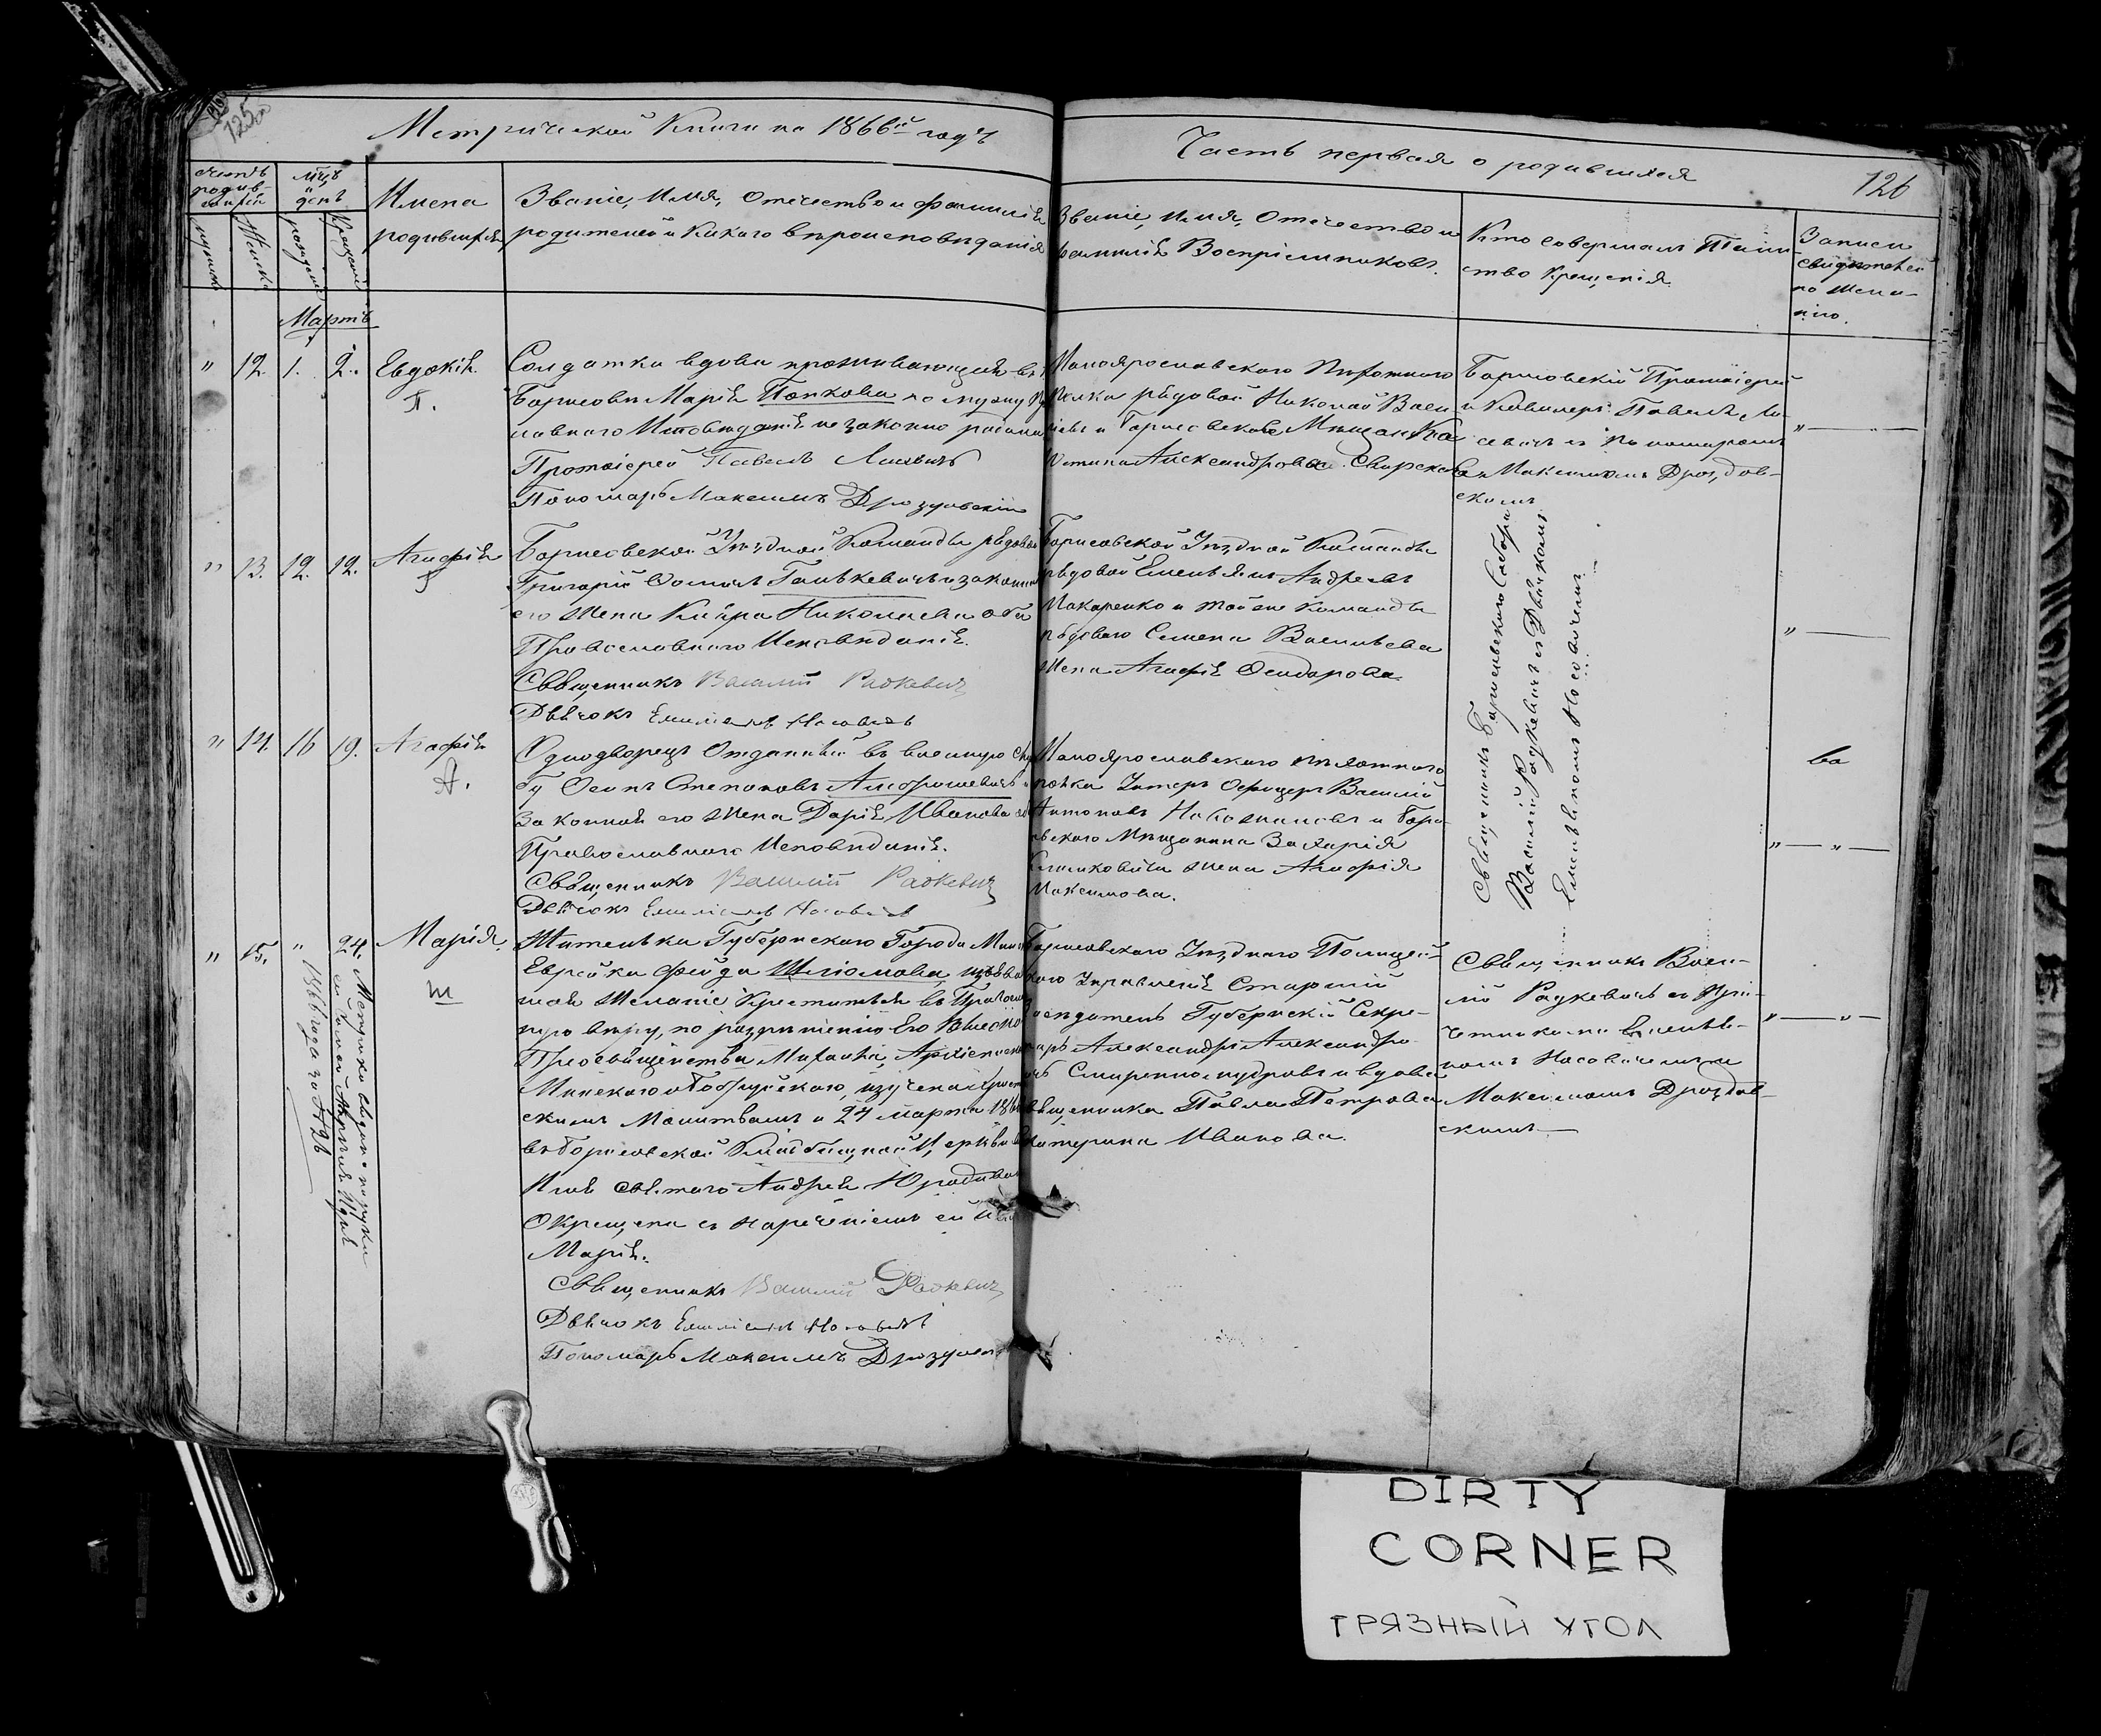 125
Метрической Книги на 1866й годъ
Часть первая о родившихся
126
Мцъ и день
Имена родившихся
Званіе, Имя, Отечество и фамилія
родителей и Какого вѣроисповѣданія
Званіе, имя, Отечество и
фамилія Воспріемниковъ.
Кто совершалъ Таин-
ство Крещенія
Записи
свидѣтелей
по жела-
нію.
Мартъ
" 12. 1. 2. Евдокія.
П.
Солдатка вдова проживающая въ
Борисовѣ Марія Попкова по мужу
Протоіерей Павелъ
Пономарь Максимъ Дроздовскій
Малоярославского Пѣхотного
Полка рядовой Николай Васи-
льевъ и Борисовская Мѣщанка
Александрова
Борисовскій Протоіерей
и Кавалеръ Павелъ
съ Пономаремъ
Максимомъ Дроздов-
скимъ
" — —
" 13. 12. 12. Агафія
Борисовской Уѣздной Команды рядовой
Григорій Ѳоминъ Ганькевичъ и законная
его жена Киіра Николаева оба
Православнаго Исповѣданія.
Священникъ Василій Радкевичъ
Дьячокъ Емиліанъ Насовичъ
Борисовской Уѣздной Команды
рядовой Емельянъ Андреевъ
Макаренко и той же Команды
рядоваго Семена Васильева
жена Агафія Ѳеодорова.
Священникъ Борисовского Собора
Василій Радкевичъ съ Дьячкомъ
Емельяномъ Носовичемъ
" —
" 14. 16 19. Агафія
А.
Однодворецъ Отданный въ военную служ
бу Осипъ Степановъ Амброшевичъ и
Законная его жена Дарія Иванова оба
Православнаго Исповѣданія.
Священникъ Василій Радкевичъ
Дьячокъ Емиліанъ Насовичъ
Малоярославского пѣхотного
полка Унтеръ Офицеръ Василій
Антоновъ и Бори-
совского Мѣщанина Захарія
Климковича жена Агафія
Максимова.
" — " —
" 15. " 24. Марія.
Ш
Метрика выдана
1866 года за № 96
Жителька Губернского Города Минска
Еврейка Фейда Шліомова, изъяви
шая желаніе Креститься въ Православ
ную вѣру, по разрѣшенію Его Высоко
Преосвященства Михаила, Архіепископа
Минскаго и Бобруйскаго, изучена Христіан
скимъ Молитвамъ и 24 марта 1866
въ Борисовской Кладбищной Церкви во
Имя святаго Андрея Юродиваго
Окрещена съ нареченіемъ ей имя
Марія.
Священникъ Василій Радкевичъ
Дьячокъ Емиліанъ Насовичъ
Пономарь Максимъ Дроздовскій
Борисовского Уѣзднаго Полицей-
скаго Управленія Старшій
Засѣдатель Губернскій Секре-
тарь Александръ Александро-
вичъ Смиренномудровъ и вдова
Священника Павла Петрова
Катерина Иванова.
Священникъ Васи-
лій Радкевичъ съ При-
четниками Емелья-
номъ Носовичемъ и
Максимомъ Дроздов-
скимъ —
" — " —
DIRTY
CORNER
ГРЯЗНЫЙ УГОЛ